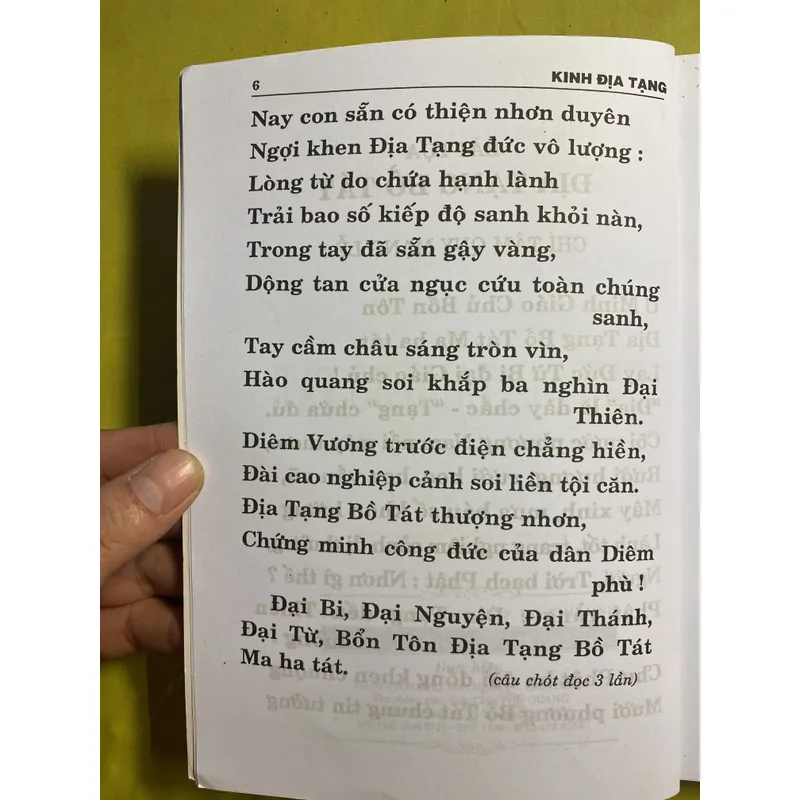 6 KINH ĐỊA TẠNG
Nay con sẵn có thiện nhơn duyên
Ngợi khen Địa Tạng đức vô lượng :
Lòng từ do chứa hạnh lành
Trải bao số kiếp độ sanh khỏi nàn,
Trong tay đã sẵn gậy vàng,
Dộng tan cửa ngục cứu toàn chúng
sanh,
Tay cầm châu sáng tròn vìn,
Hào quang soi khắp ba nghìn Đại
Thiên.
Diêm Vương trước điện chẳng hiền,
Đài cao nghiệp cảnh soi liền tội căn.
Địa Tạng Bồ Tát thượng nhơn,
Chứng minh công đức của dân Diêm
phù !
Đại Bi, Đại Nguyện, Đại Thánh,
Đại Từ, Bổn Tôn Địa Tạng Bồ Tát
Ma ha tát.
(câu chót đọc 3 lần)